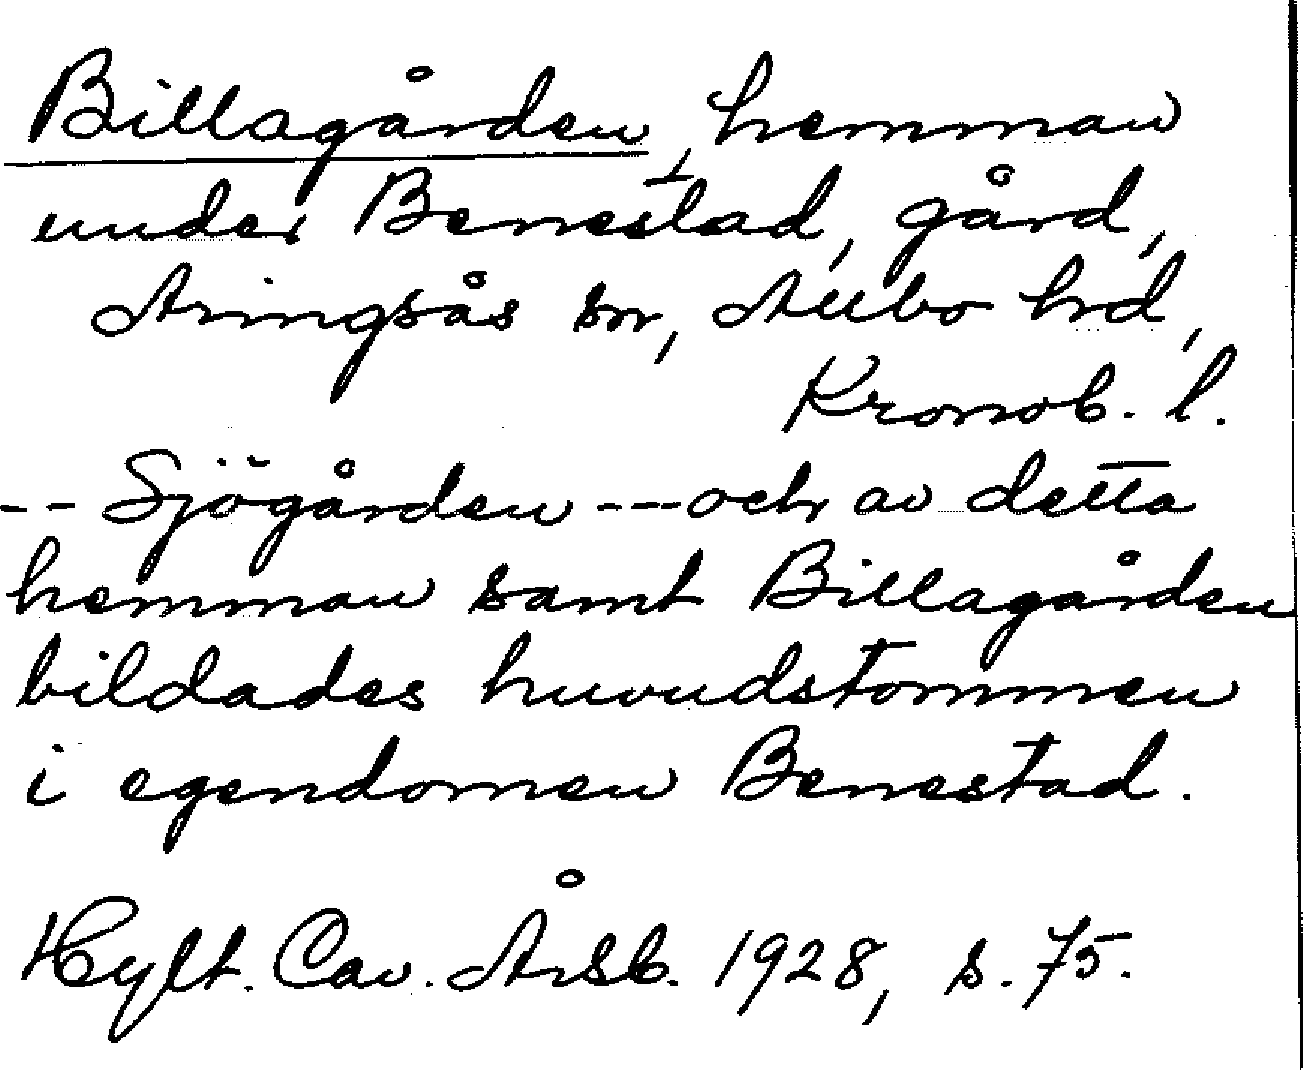 Billagården, hemman
under Benestad, gård,
Aringsås sn, Allbo hd,
Kronob. l.
-- Sjögården --- och av detta
hemman samt Billagården
bildades huvudstommen
i egendomen Benestad.
Hylt. Cav. Årsb. 1928, s. 75.